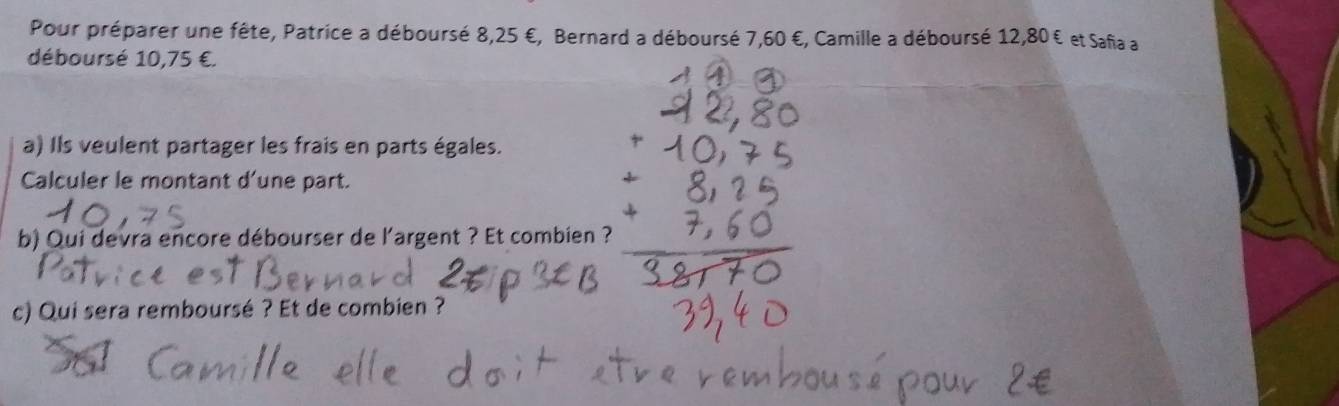 Pour préparer une fête, Patrice a déboursé 8,25 €, Bernard a déboursé 7,60 €, Camille a déboursé 12,80 € et Safia a
déboursé 10,75 €.
1 1 1
12,80
a) Ils veulent partager les frais en parts égales.
+ 10,75
Calculer le montant d'une part.
+ 8,25
10,75
+ 7,60
b) Qui devra encore débourser de l'argent ? Et combien ?
Patrice est Bernard 2€ p 3€ B
38,70
c) Qui sera remboursé ? Et de combien ?
39,40
Camille elle doit etre rembousé pour 2€